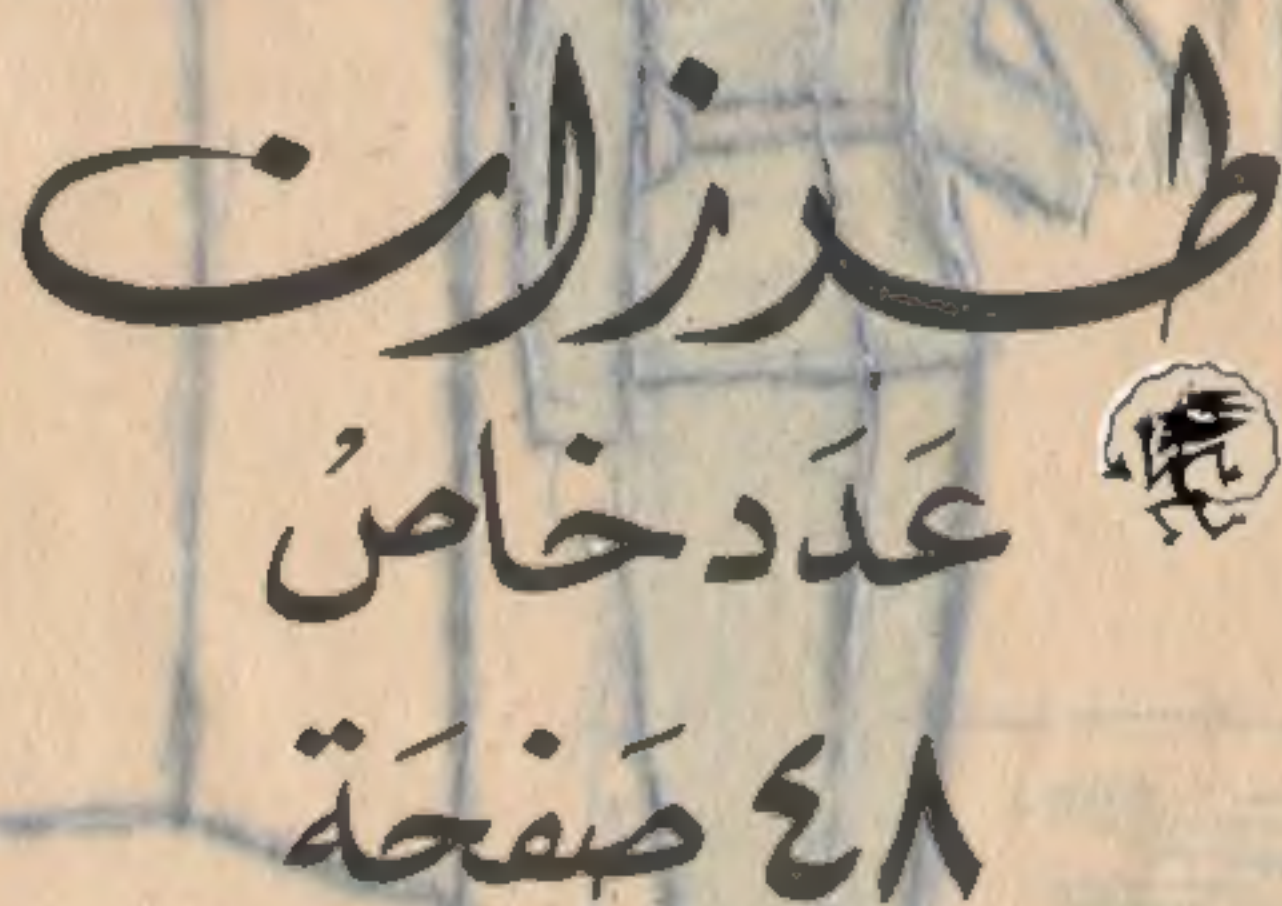 طرزان
عَدَد خاصُ
٤٨ صَفحَة